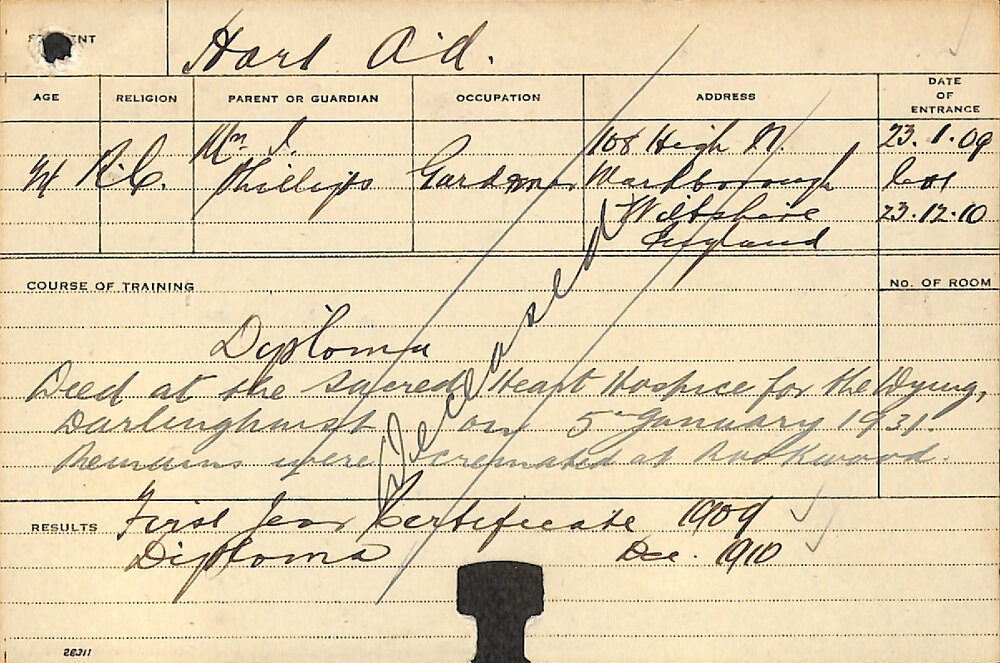 STUDENT Hart A.d.
AGE RELIGION PARENT OR GUARDIAN OCCUPATION ADDRESS DATE OF ENTRANCE
Mr J. 108 High St. 23.1.09
R.C. Phillips Gardener Marlborough Left
Wiltshire 23.12.10
England
Deceased
COURSE OF TRAINING No. OF ROOM
Diploma
Died at the Sacred Heart Hospice for the Dying,
Darlinghurst on 5th January 1931.
Remains were cremated at Rookwood.
RESULTS First Year Certificate 1909
Diploma Dec. 1910
26311